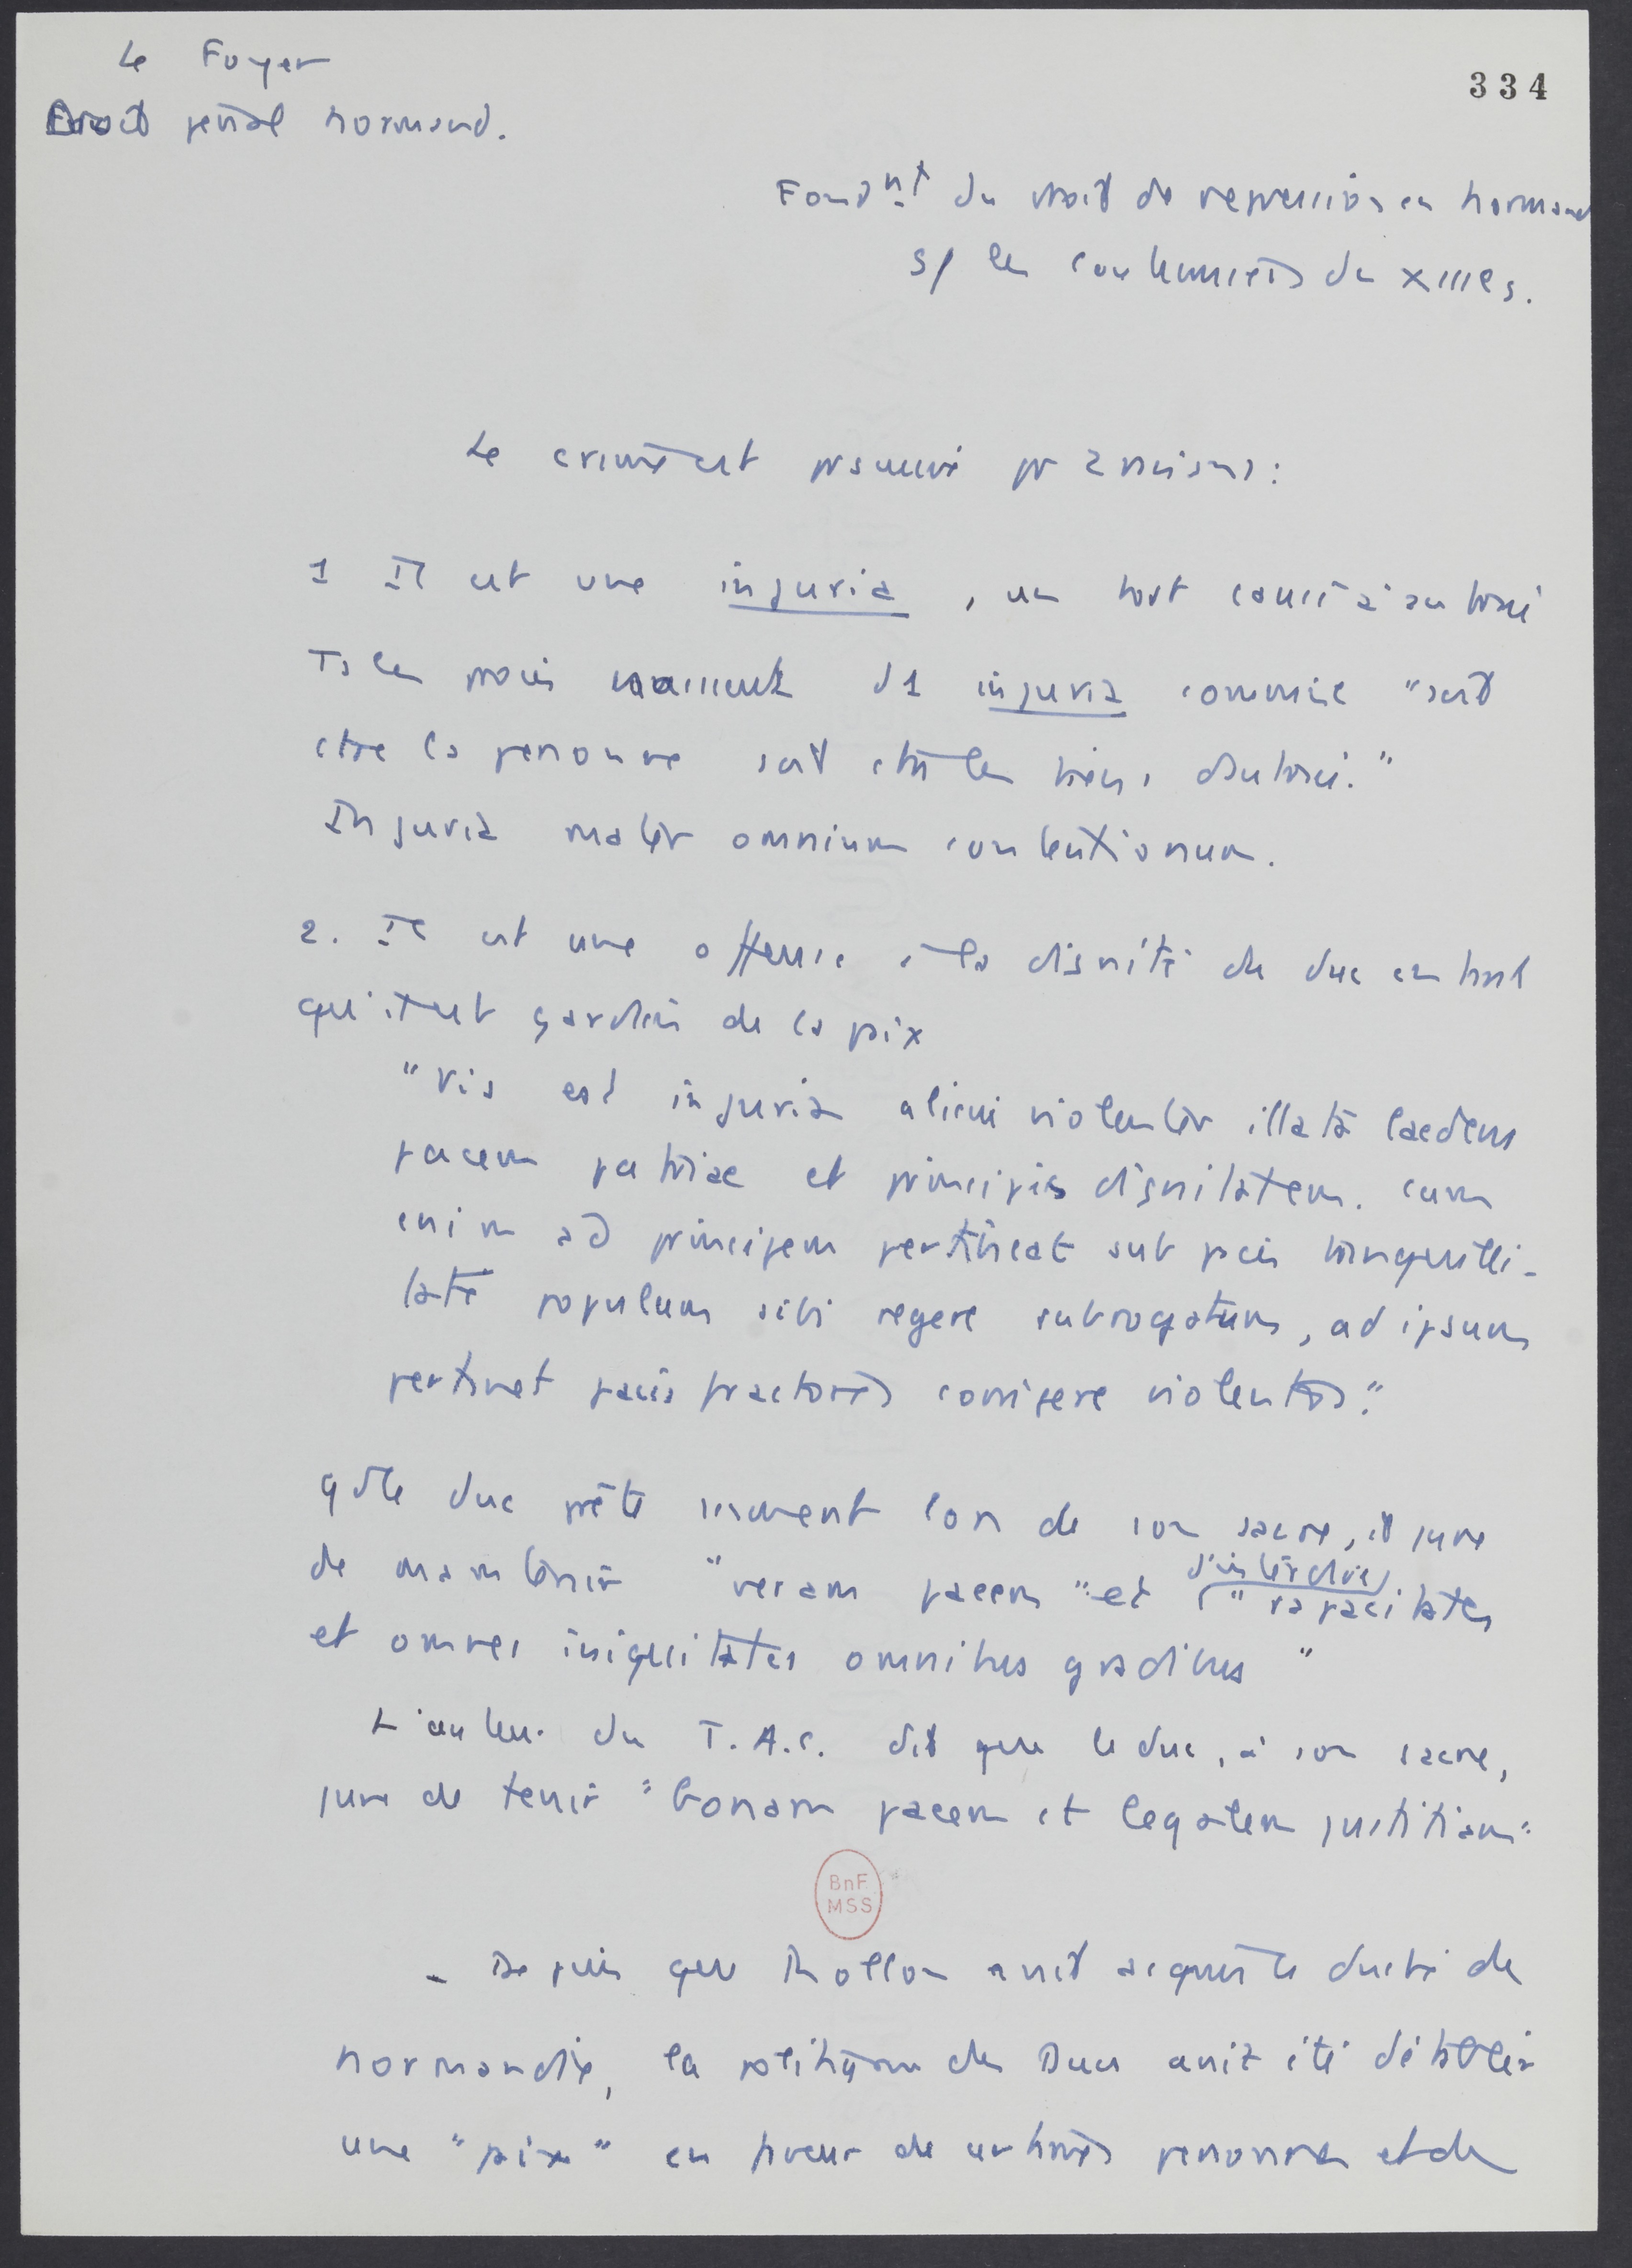 Le Foyer
334
Droit pénal normand.
Fondnt du droit de repression en normand
s/ les coutumiers du XIIIe s.
Le crime est psuivi pr 2 raisons :
1 Il est une injuria, un tort causé à autrui
Ts les procès naissent d'1 injuria commise "soit
ctre la personne soit ctre les biens d'autrui."
Injuria mater omnium contentionum.
2. Il est une offense à la dignité du duc en tant
qu'il est gardien de la paix
"Vis est injuria alicui violenter illata laedens
pacem patriae et principis dignitatem. cum
enim ad principem pertineat sub pacis tranquilli-
tate populum sibi regere subrogatum, ad ipsum
pertinet pacis fractores corrigere violentos."
qd le duc prête serment lors de son sacre, il jure
de maintenir "veram pacem" et d'interdire "rapacitates
et omnes iniquitates omnibus gradibus"
L'auteur du T.A.C. dit que le duc, à son sacre,
jure de tenir "bonam pacem et legalem justitiam"
BnF
MSS
- Depuis que Rollon avait acquis le duché de
normandie, la politique des Ducs avait été d'établir
une "paix" en faveur de certaines personnes et de